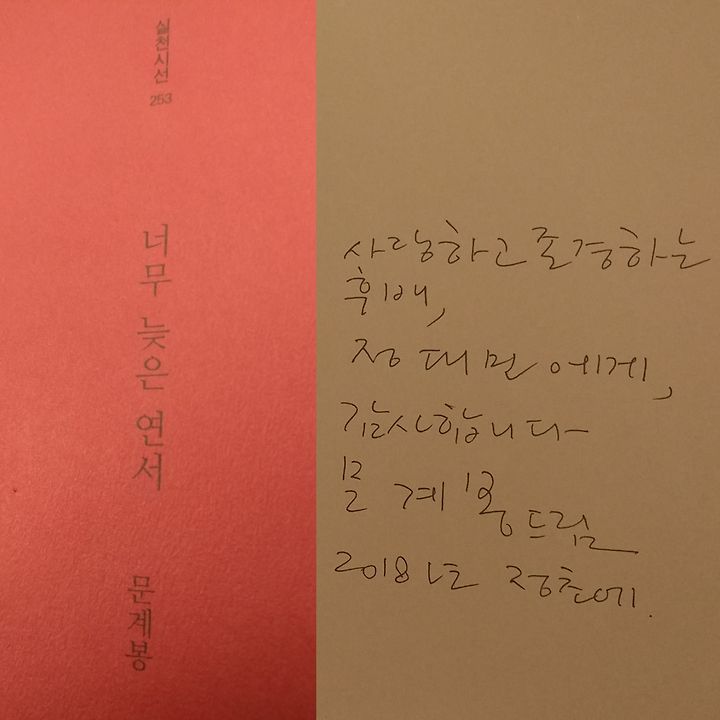 실천시선
253
너무 늦은 연서
문계봉
사랑하고 존경하는
후배,
정대민에게,
감사합니다
문계봉드림
2018년 정초에.